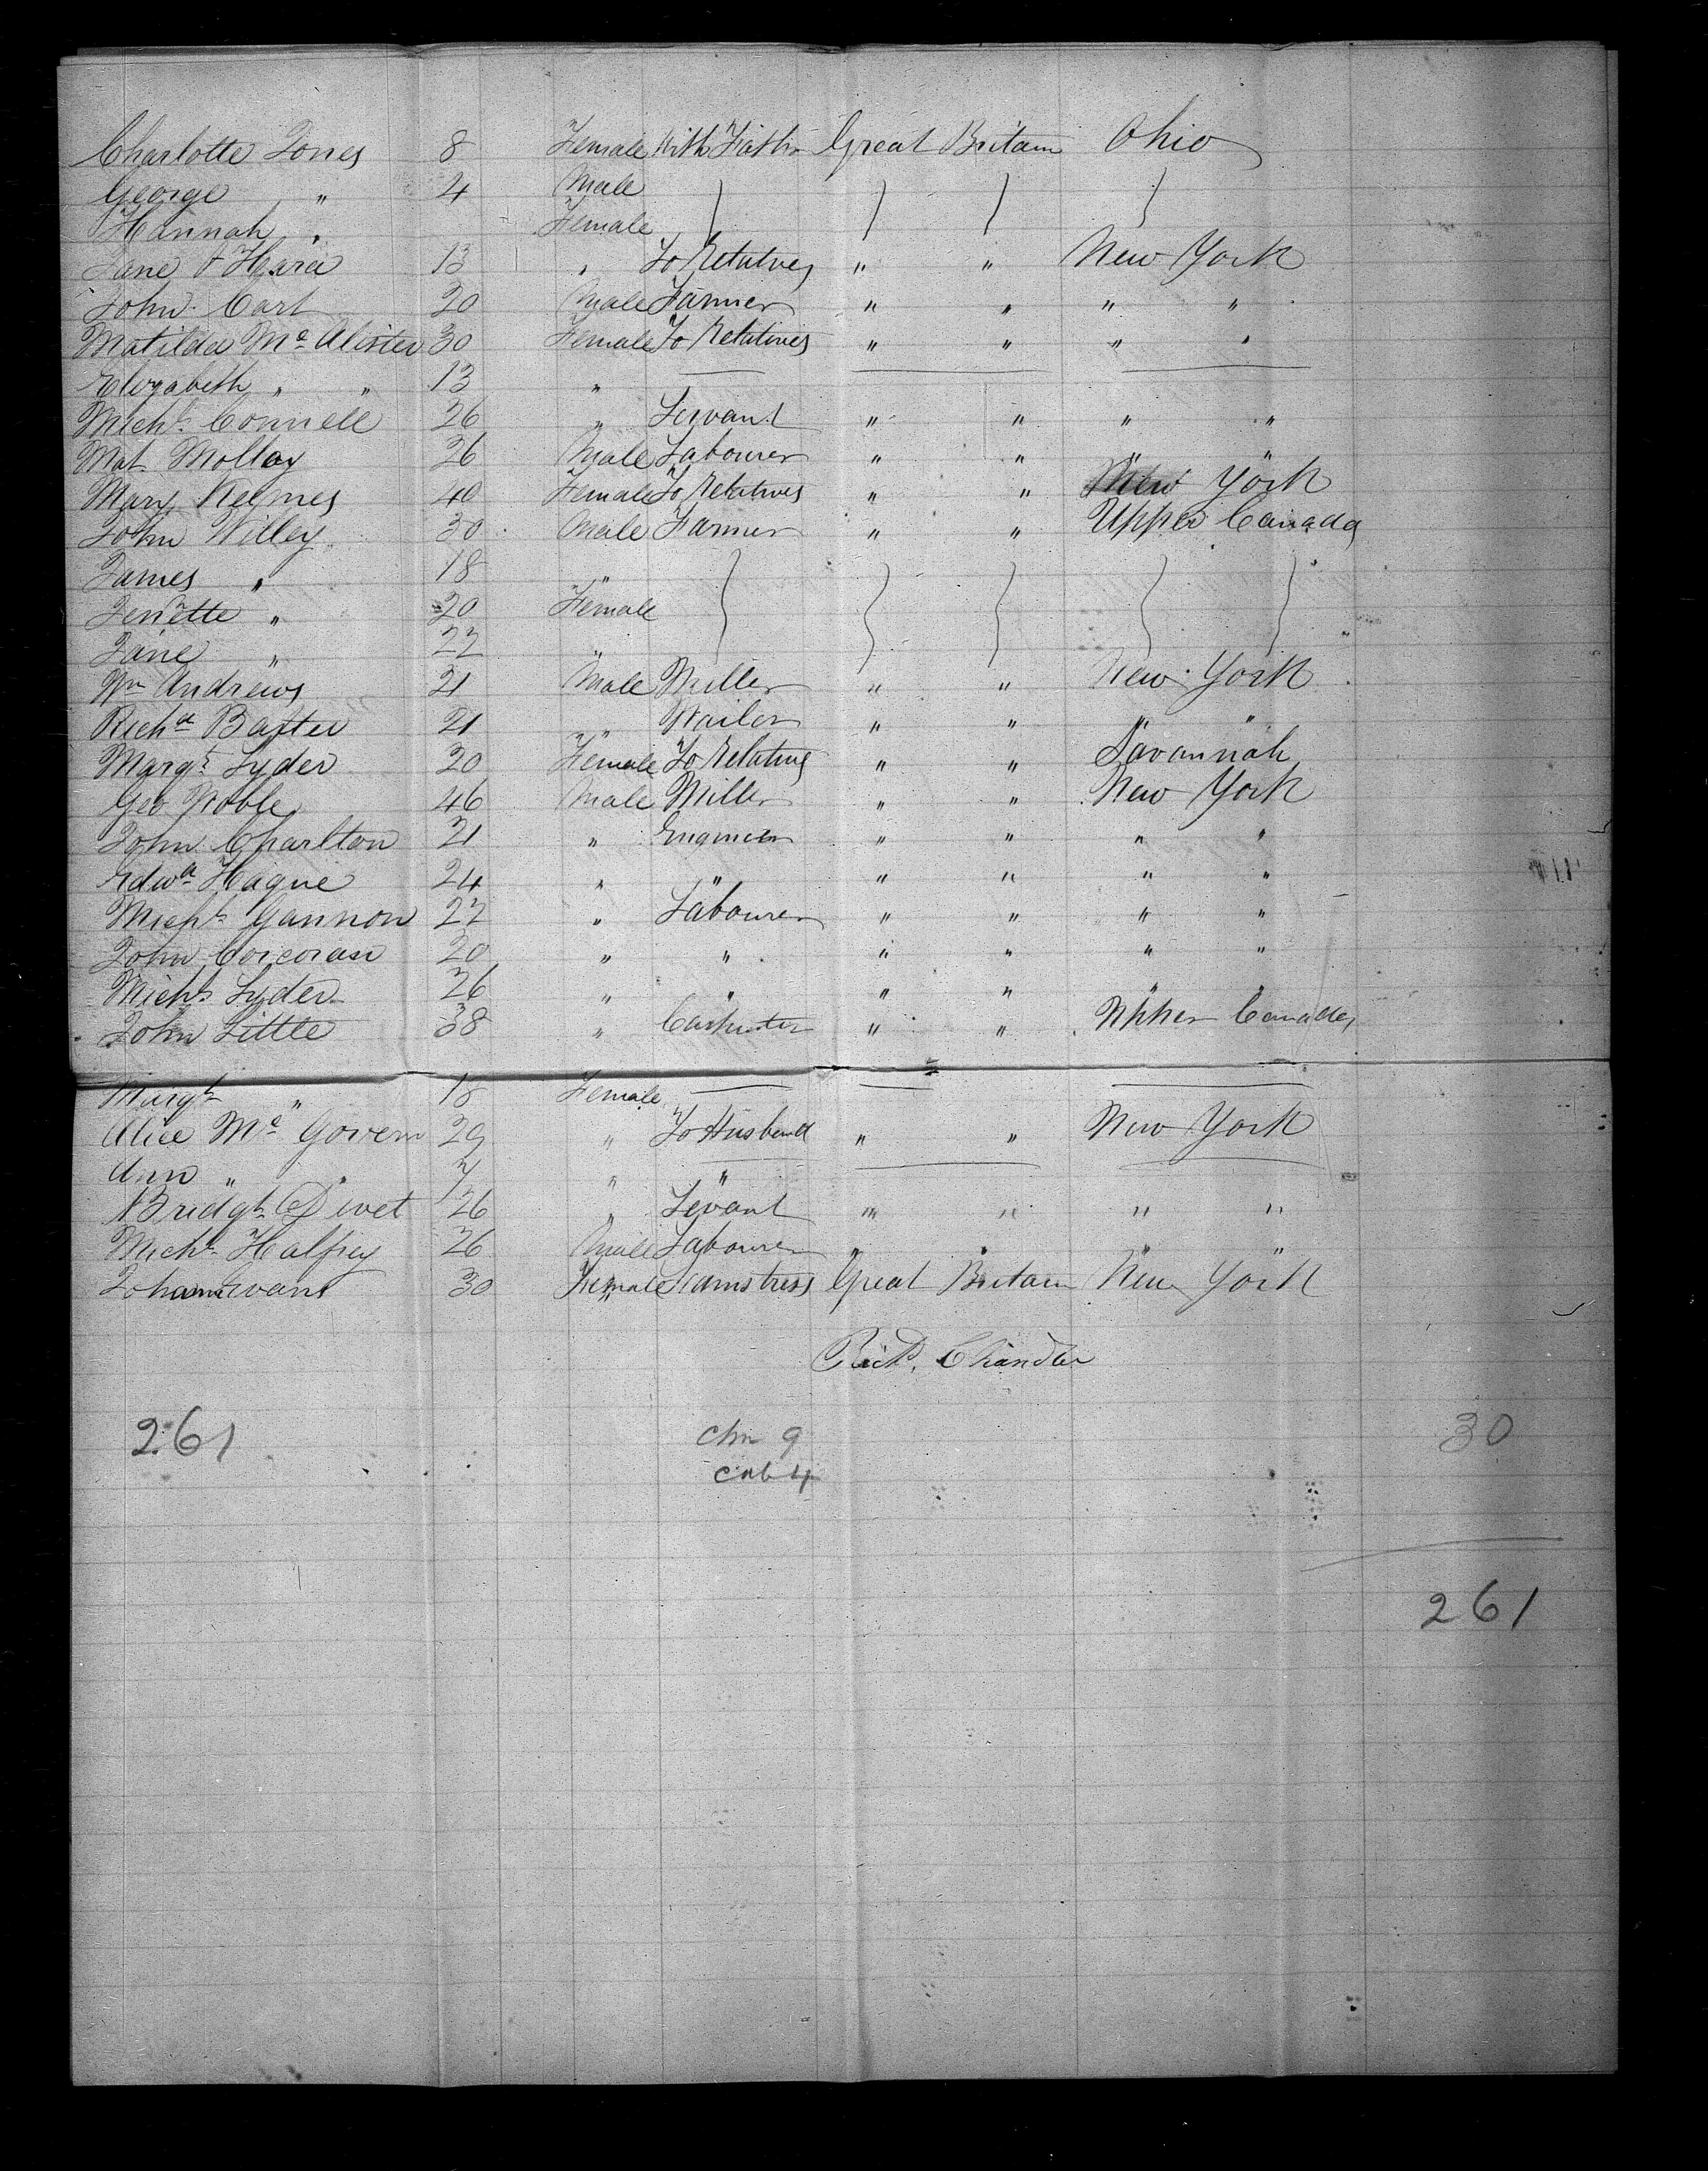 Charlotte Jones 8 Female With Father Great Britain Ohio
George " 4 Male
Hannah " Female
Jane O'Hara 13 " To Relatives " " New York
John Carl 20 Male Farmer " " " "
Matilda Mc Alister 30 Female To Relatives " " " "
Elizabeth " " 13 "
Michl Connell 26 " Servant " " " "
Mat Molloy 26 Male Labourer " " " "
Mary Kelmes 40 Female To Relatives " " New York
John Willey 30 Male Farmer " " Upper Canada
James " 18 "
Jenette " 20 Female
Jane " 22 "
Wm Andrews 21 Male Miller " " New York
Richd Baxter 21 " " " " "
Margt Lyder 20 Female To Relatives " " Savannah
Geo Noble 46 Male Miller " " New York
John Charlton 21 " Engineer " " " "
Edwd Hague 24 " " " " " "
Michl Gannon 22 " Labourer " " " "
John Corcoran 20 " " " " " "
Michl Lyder 26 " " " " " "
John Little 38 " Carpenter " " Upper Canada
Margt " 18 Female
Alice Mc Govern 29 " To Husband " " New York
Ann " " 7 " "
Bridgt Divet 26 " Sevant " " " "
Michl Halfrey 26 Male Labourer " " " "
Evans 30 Female Seamstress Great Britain New York
Richd. Chandler
261 chn 9 30
4
261